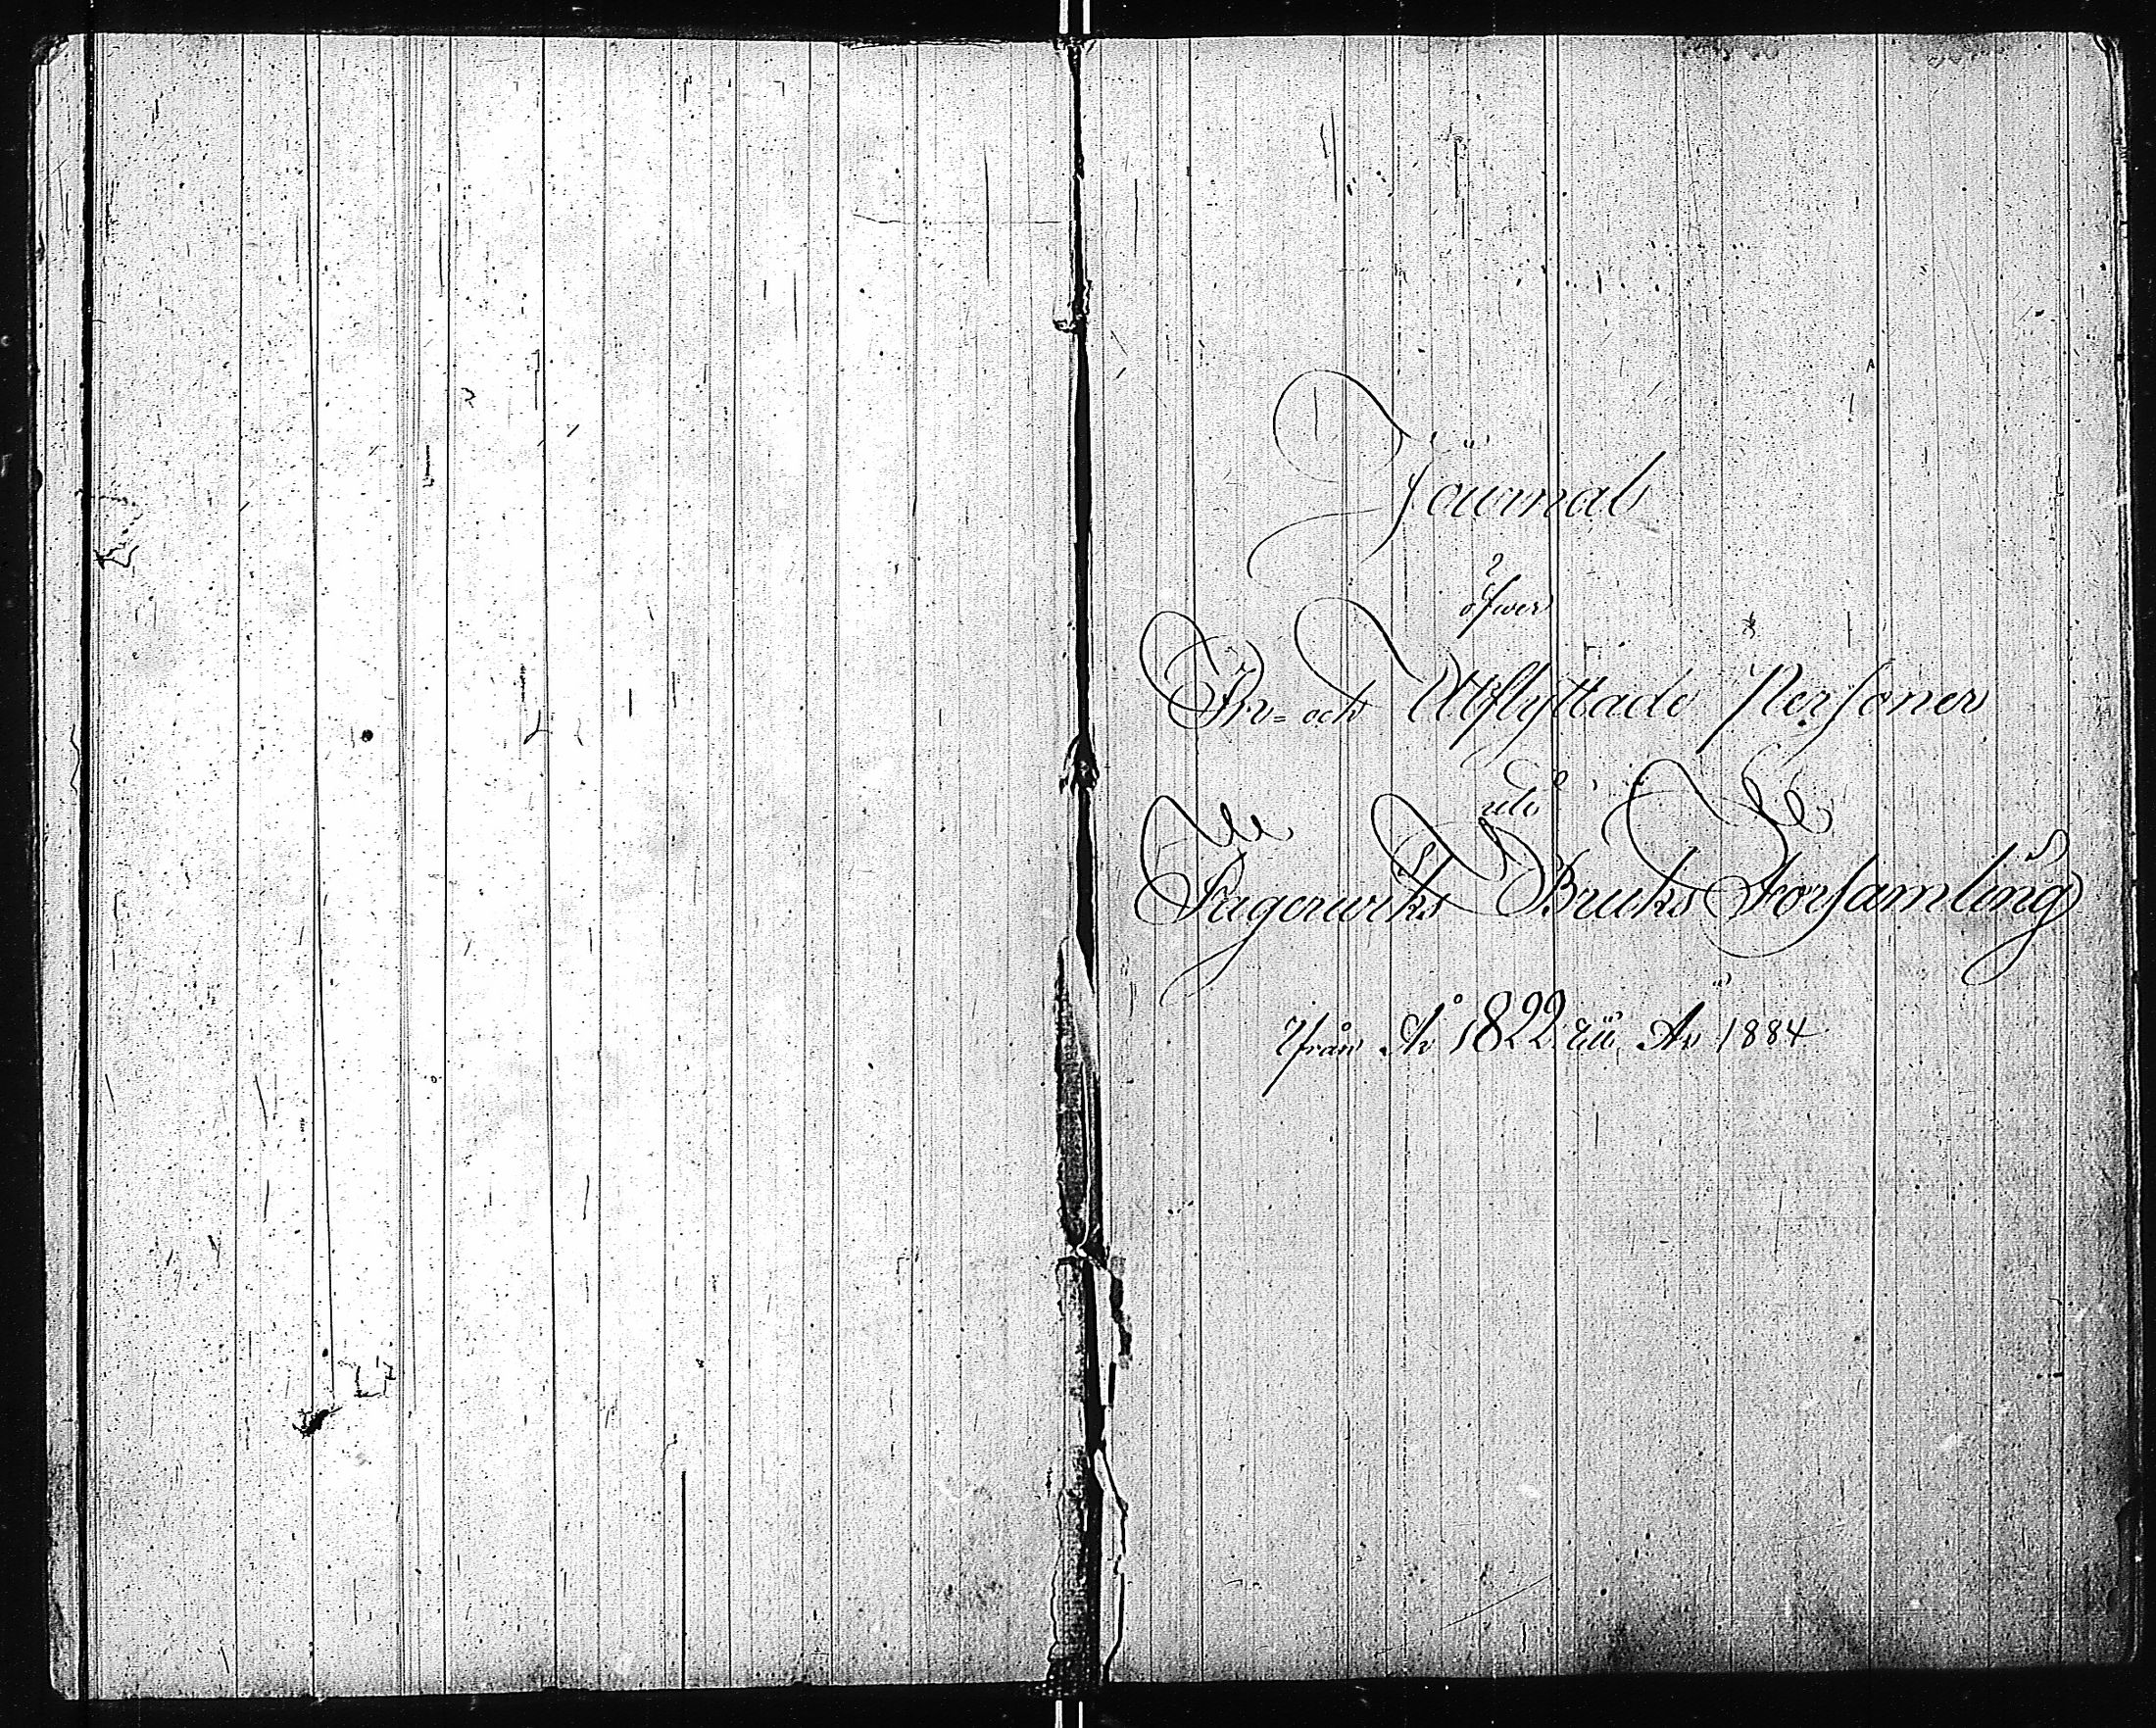 Journal
öfwer
In- och Utflyttade Personer
uti
Fagerwiks Bruks Församling
ifrån År 1822 till År 1884